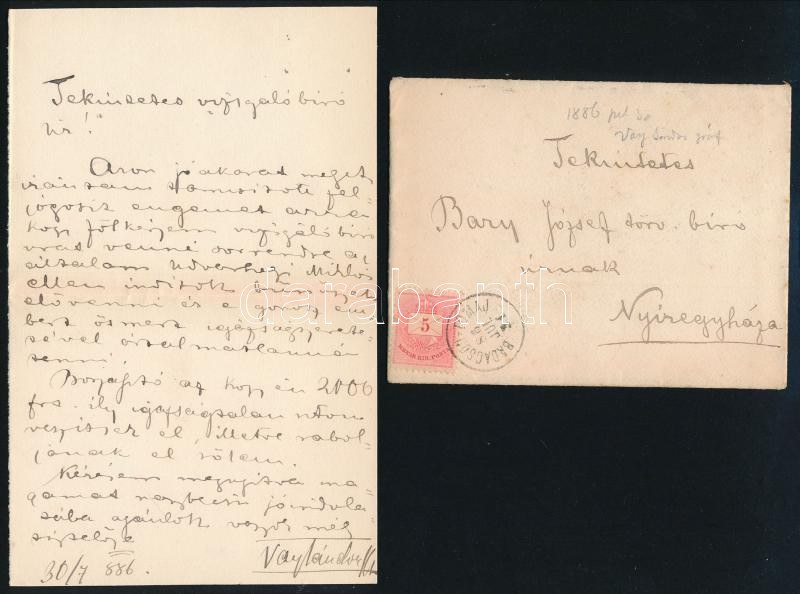 Tekintetes vizsgálóbiró
Úr!
Azon jóakarat megett
irántam tanusitott fel-
jogosit engemet arra
hogy fölkérjem vizsgálóbiró
urat venni sorrendre az
általam Udvarhelyi Miklós
ellen inditott bünügyet
elővenni és e gonosz em-
bert ösmert igazságszerete-
sével ártalmatlanná
tenni.
Borzasztó az hogy én 2000
frt. ily igazságtalan uton
veszitsek el, illetve rabol-
janak el tőlem.
Kérésem megujitva ma-
gamat nagybecsü jóindula-
tába ajánlok vagyok mély
tisztelője
30/7 886.
Vay Sándor
1886 jul 30
Vay Sándor gróf
Tekintetes
Bary József törv. biró
úrnak
Nyiregyháza
5
MAGYAR KIR. POSTA
BADACSON-TOMAJ
darabanth